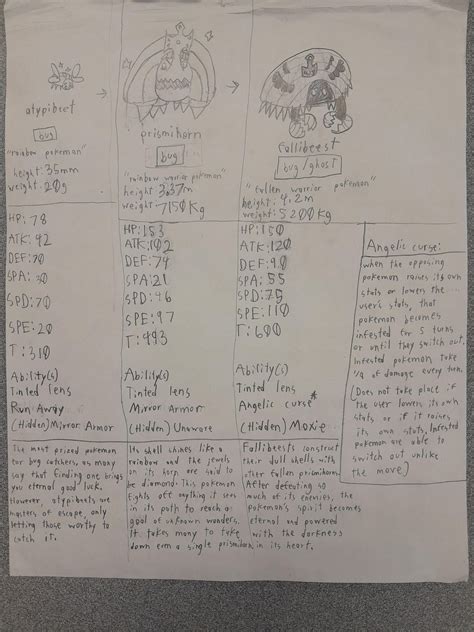 atypibeet
bug
"rainbow pokemon"
height: 35mm
weight: 20g
HP: 78
ATK: 42
DEF: 70
SPA: 30
SPD: 70
SPE: 20
T: 310
Ability(s)
Tinted lens
Run Away
(Hidden) Mirror Armor
The most prized pokemon
for bug catchers, as many
say that finding one brings
you eternal good luck.
However, atypibeets are
masters of escape, only
letting those worthy to
catch it.
prismihorn
bug
"rainbow warrior pokemon"
height: 3.37m
weight: 7150Kg
HP: 153
ATK: 102
DEF: 74
SPA: 21
SPD: 46
SPE: 97
T: 493
Ability(s)
Tinted lens
Mirror Armor
(Hidden) Unaware
Its shell shines like a
rainbow and the jewels
in its horn are said to
be diamond. This pokemon
fights off anything it sees
in its path to reach a
goal of unknown wonders.
It takes many to take
down even a single prismihorn.
Fallibeest
bug/ghost
"fallen warrior pokemon"
height: 4.2m
weight: 5200Kg
HP: 150
ATK: 120
DEF: 90
SPA: 55
SPD: 75
SPE: 110
T: 600
Ability(s)
Tinted lens
Angelic curse*
(Hidden) Moxie
Fallibeests construct
their dull shells with
other fallen prismihorn.
After defeating so
much of its enemies, the
pokemon's spirit becomes
eternal and powered
with the darkness
in its heart.
Angelic curse:
when the opposing
pokemon raises its own
stats or lowers the
user's stats, that
pokemon becomes
infested for 5 turns
or until they switch out.
Infested pokemon take
of damage every turn.
(Does not take place if
the user lowers its own
stats or if it raises
its own stats. Infested
pokemon are able to
switch out unlike
the move.)